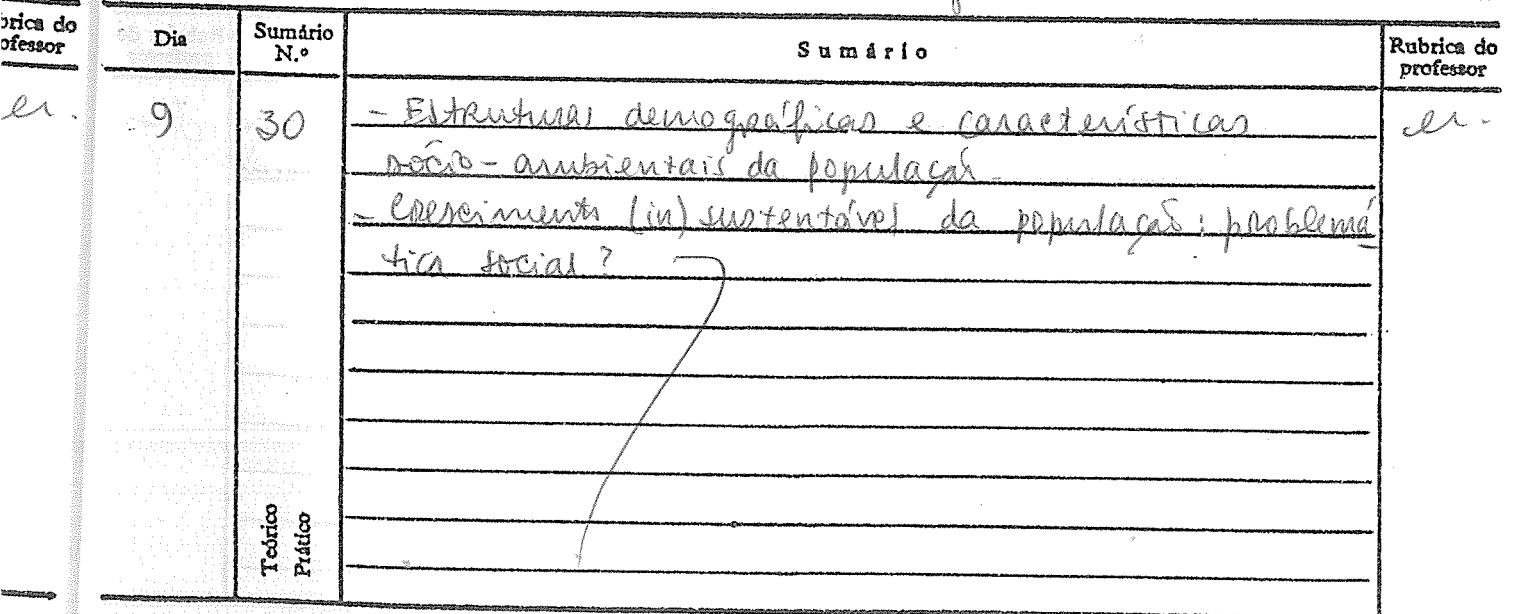 brica do
ofessor
Dia
Sumário
N.º
Sumário
Rubrica do
professor
9
30
- Estruturas demográficas e características
sócio-ambientais da população.
- Crescimento (in)sustentável da população: problemá
tica social?
Teórico
Prático